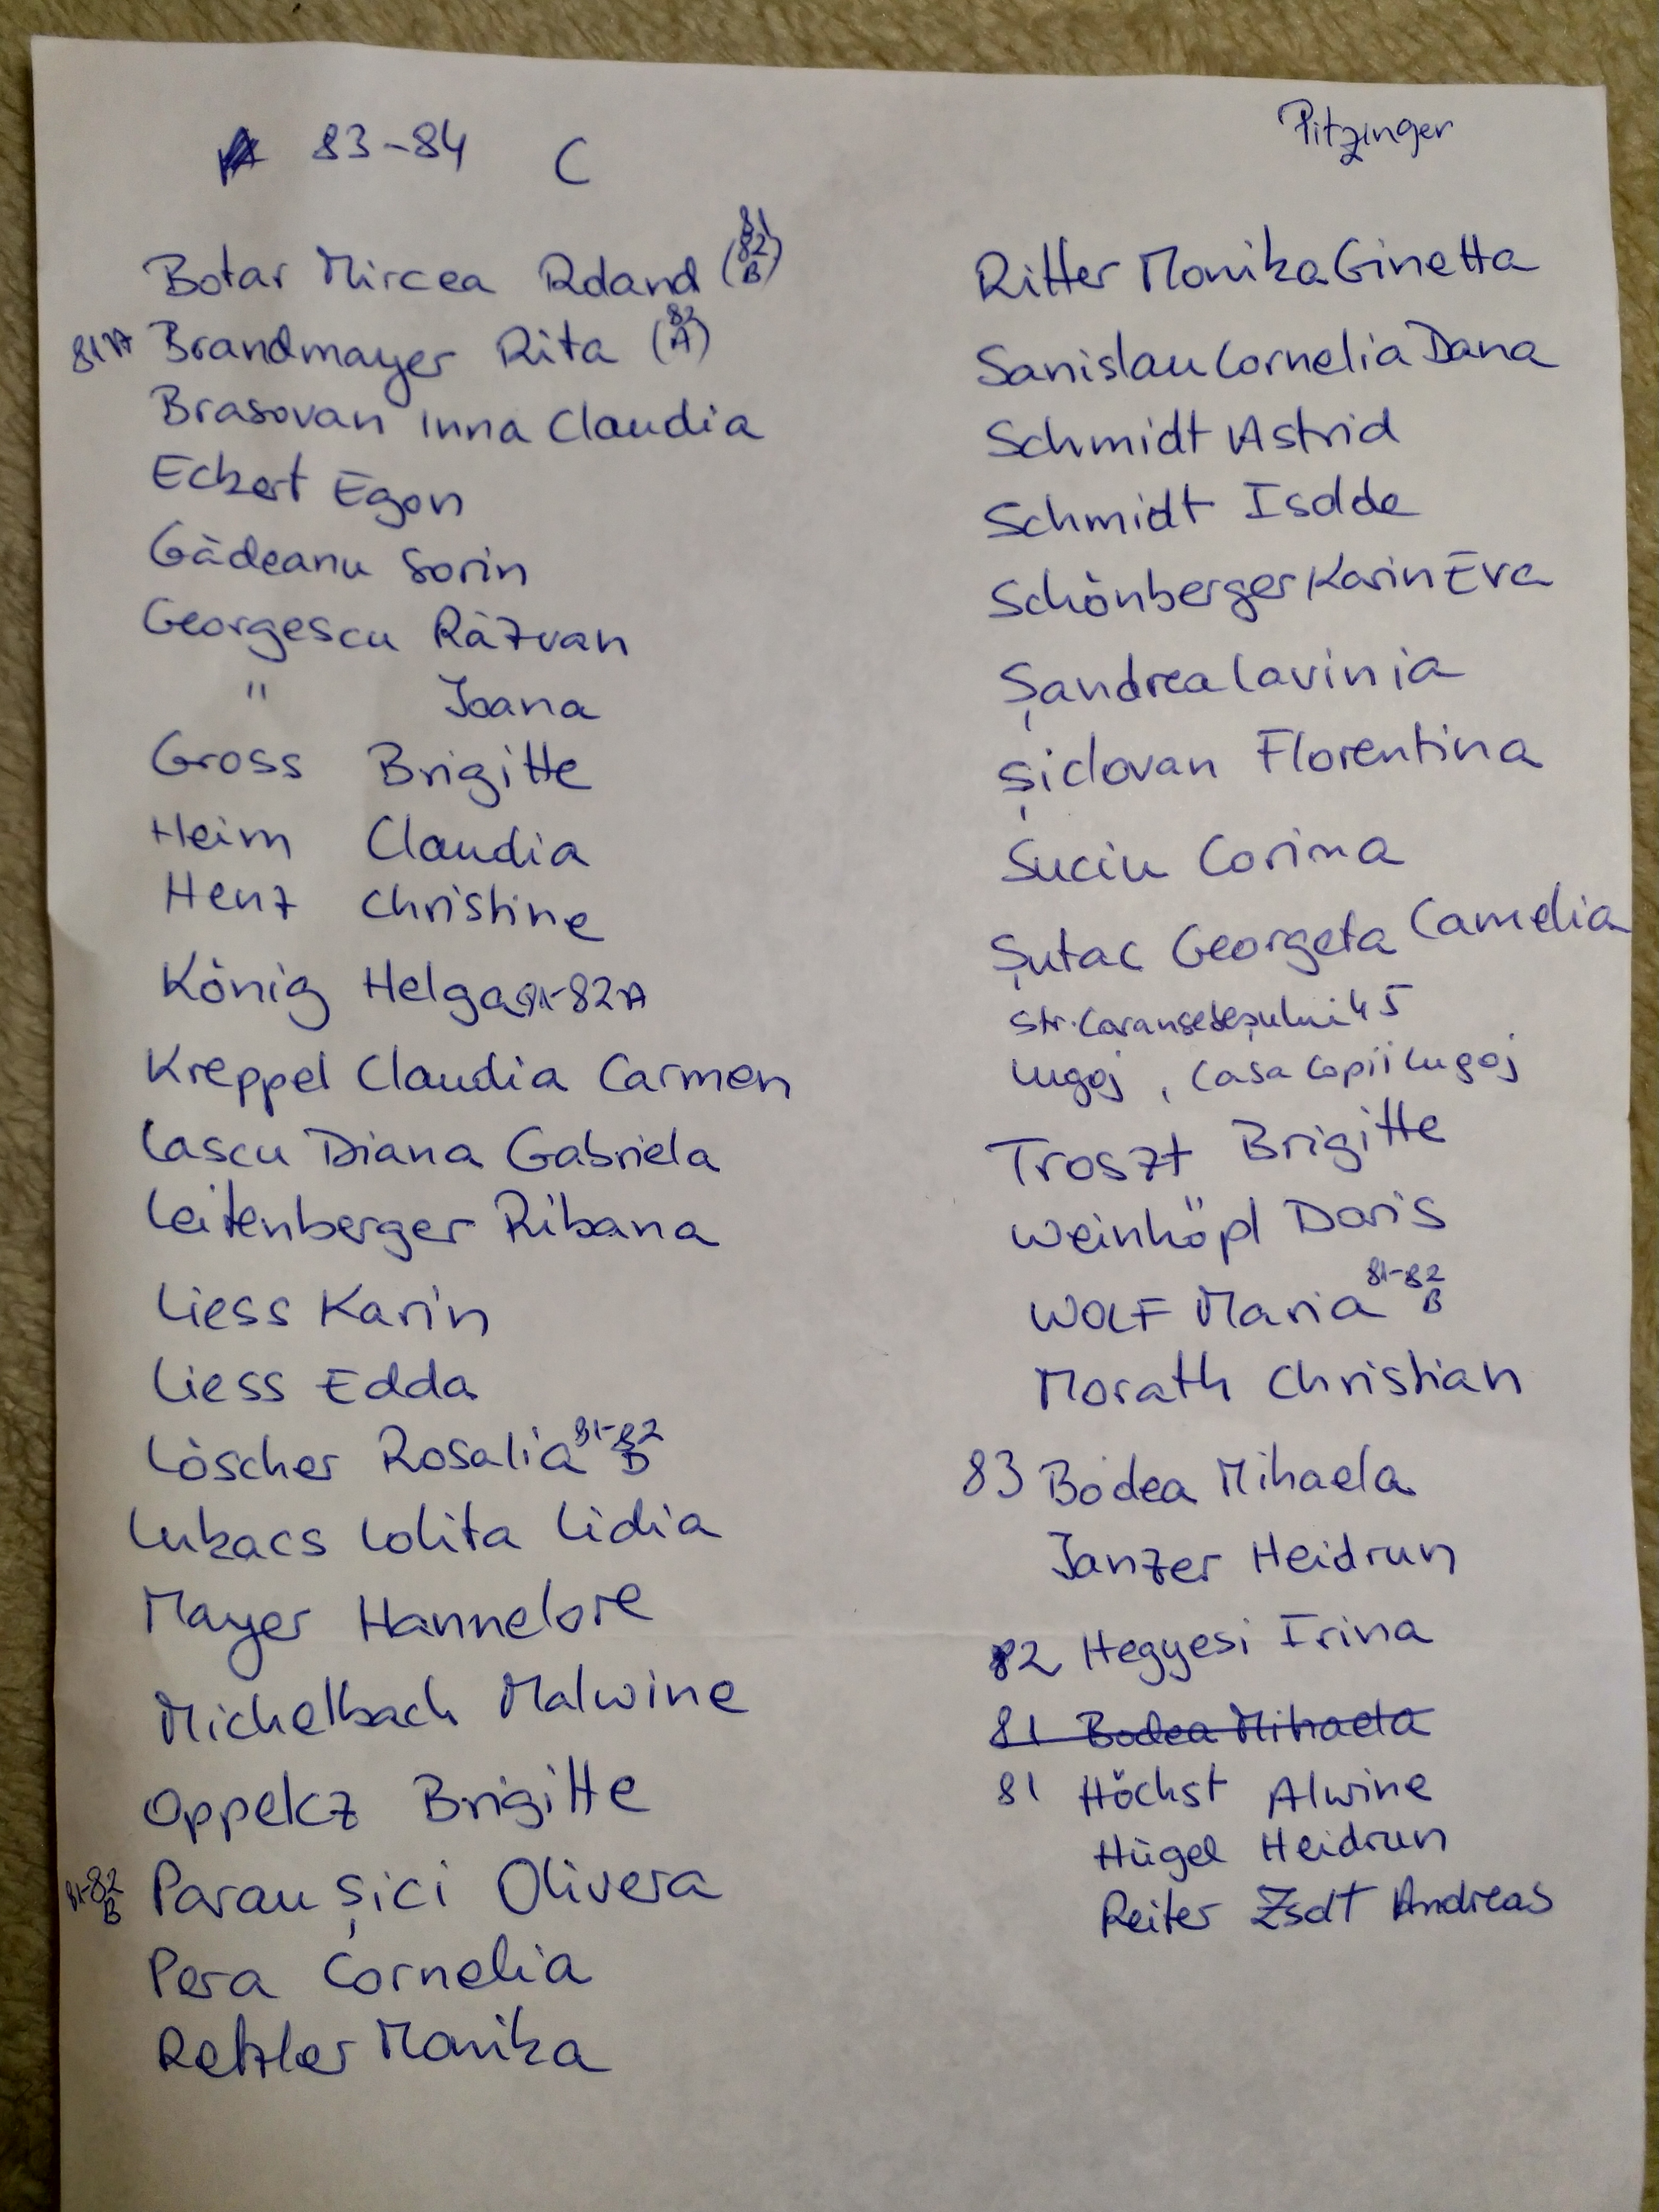 83-84 C
Pitzinger
Botar Mircea Roland (81 82 B)
81A Brandmayer Rita (82 A)
Brasovan Inna Claudia
Eckert Egon
Gàdeanu Sorin
Georgescu Ràzvan
" Joana
Gross Brigitte
Heim Claudia
Henz Christine
König Helga 81-82A
Kreppel Claudia Carmen
Lascu Diana Gabriela
Leitenberger Ribana
Liess Karin
Liess Edda
Löscher Rosalia 81-82 B
Lukacs Lolita Lidia
Mayer Hannelore
Michelbach Malwine
Oppelcz Brigitte
81-82 B Parau șici Olivera
Pera Cornelia
Retzler Monika
Ritter Monika Ginetta
Sanislau Cornelia Dana
Schmidt Astrid
Schmidt Isolde
Schönberger Karin Eva
Șandrea Lavinia
Șiclovan Florentina
Suciu Corina
Șutac Georgeta Camelia
str. Caransebeșului 45
Lugoj, Casa Copii Lugoj
Troszt Brigitte
Weinhöpl Doris
WOLF Maria 81-82 B
Morath Christian
83 Bodea Mihaela
Janzer Heidrun
82 Hegyesi Irina
81 Bodea Mihaela
81 Höchst Alwine
Hügel Heidrun
Reiter Zsolt Andreas